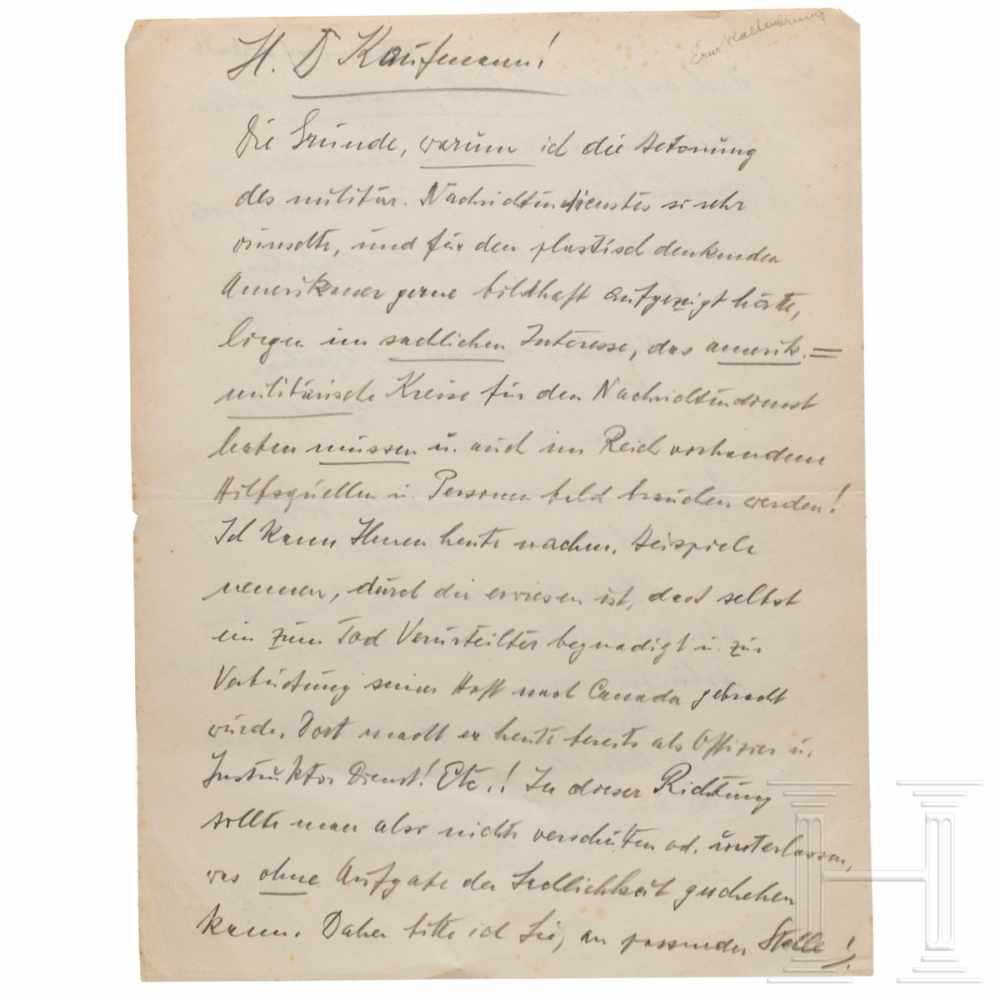 Ernst Kaltenbrunner
H. D Kaufmann!
Die Gründe, warum ich die Betonung
des militär. Nachrichtendienstes so sehr
wünschte, und für den plastisch denkenden
Amerikaner gerne bildhaft aufgezeigt hätte,
liegen im sachlichen Interesse, das amerik.=
militärische Kreise für den Nachrichtendienst
haben müssen u. auch im Reich vorhandene
Hilfsquellen u. Personen bald brauchen werden!
Ich kann Ihnen heute nachm. Beispiele
nennen, durch die erwiesen ist, dass selbst
ein zum Tod Verurteilter begnadigt u. zur
Verbüßung seiner Haft nach Canada gebracht
wurde. Dort macht er heute bereits als Offizier u.
Instruktor Dienst! Etc.! In dieser Richtung
sollte man also nichts verschütten od. unterlassen,
was ohne Aufgabe der Sachlichkeit geschehen
kann. Daher bitte ich Sie, an passender Stelle!